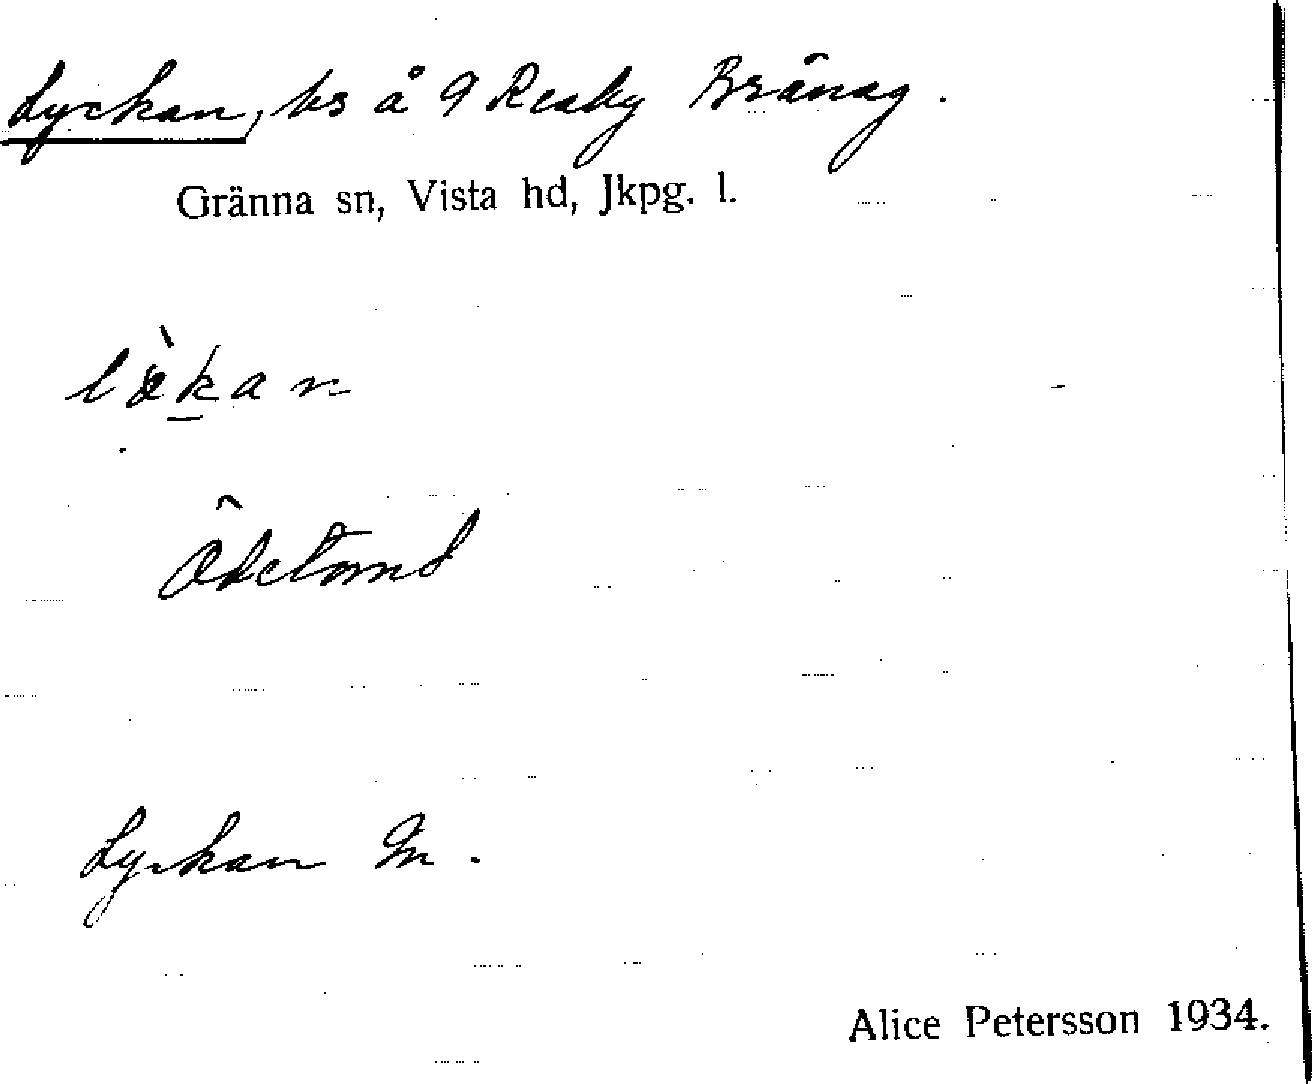 Lyckan, bs å 9 Reaby Bränag.
Gränna sn, Vista hd, Jkpg. l.
lø̀kan
Ödetomt
Lyckan Gn.
Alice Petersson 1934.